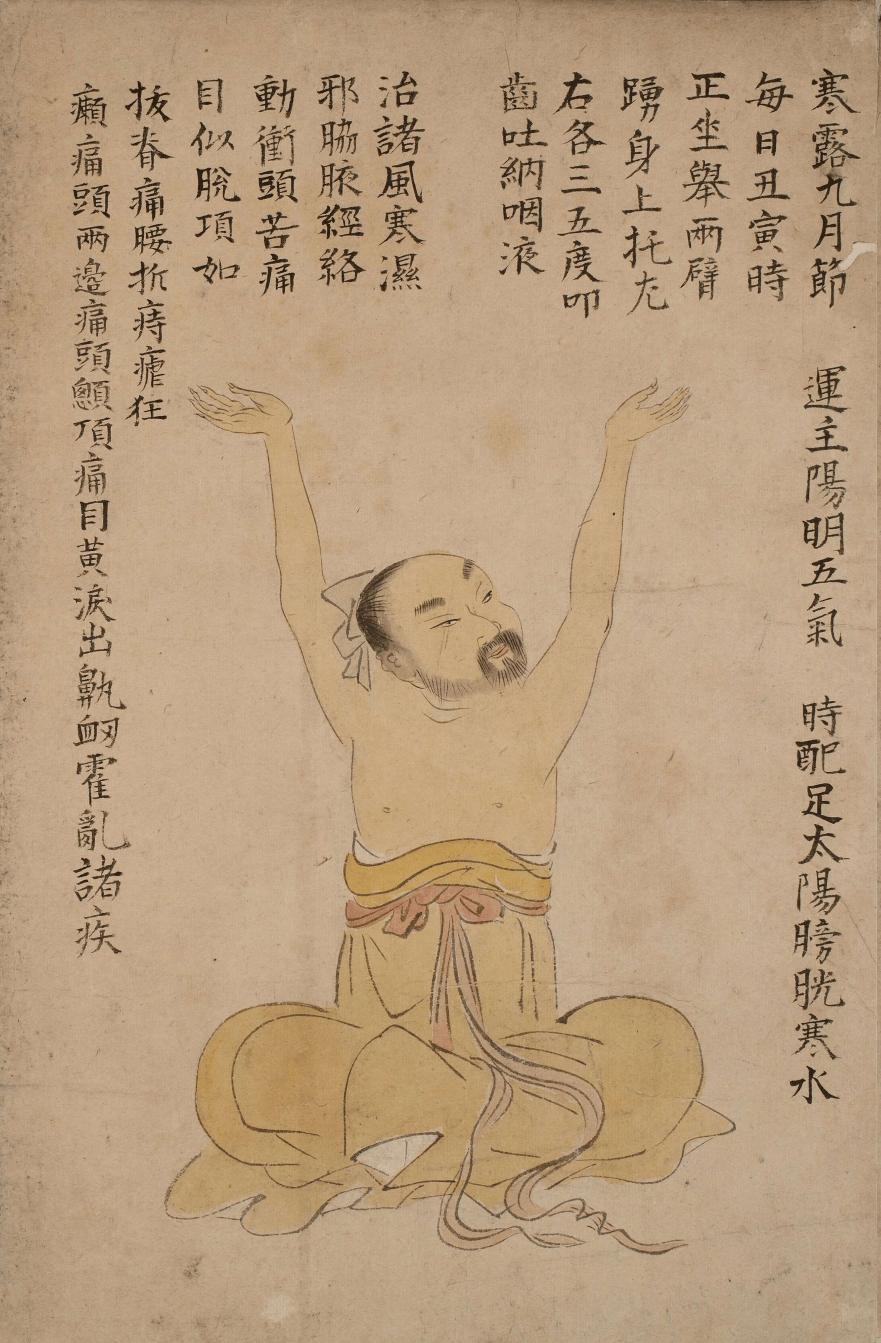 寒露九月節　運主陽明五氣　時配足太陽膀胱寒水
每日丑寅時
正坐舉兩臂
踴身上托左
右各三五度叩
齒吐納咽液
治諸風寒濕
邪脇腋經絡
動衝頭苦痛
目似脫項如
拔脊痛腰折痔瘧狂
癲痛頭兩邊痛頭顖頂痛目黃淚出鼽衂霍亂諸疾